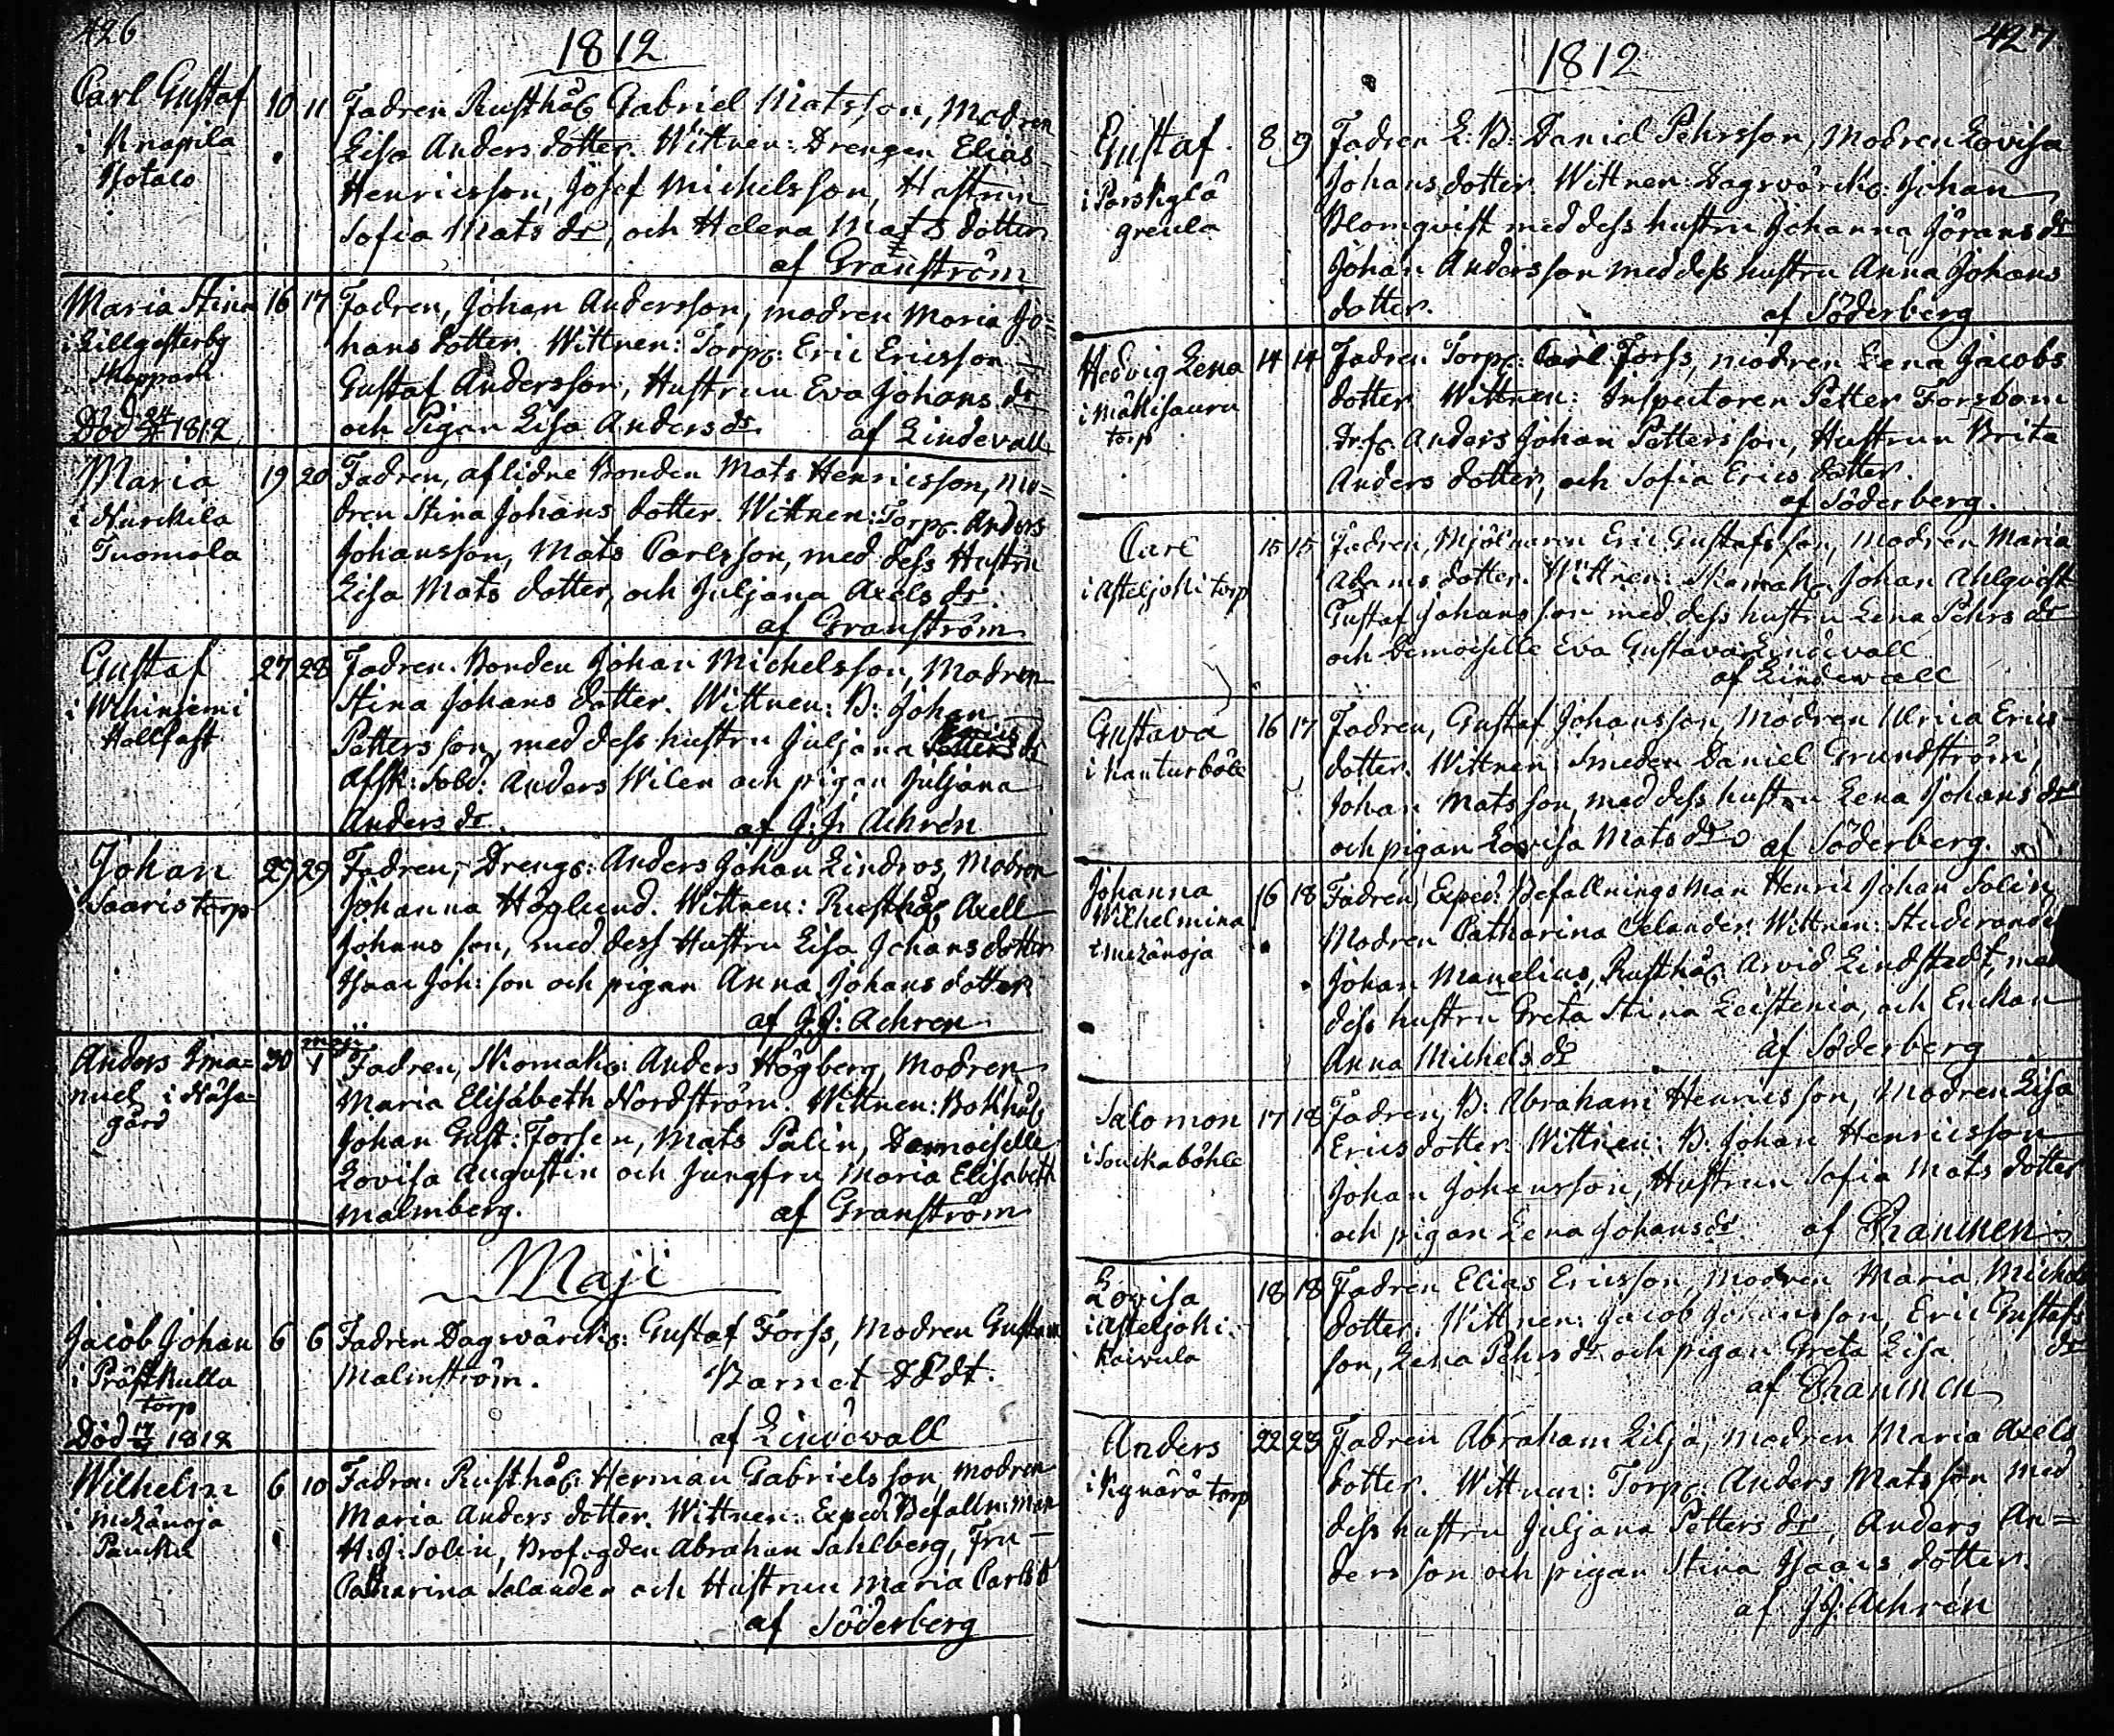 426
1812
Carl Gustaf 10 11 Fadren Rusthål: Gabriel Matsson, Modren
i Knapila Lisa Anders dotter. Wittnen: Drengen Elias
Henricsson, Josef Michelsson, Hustrun
Sofia Mats dr, och Helena Mats dotter
af Granström
Maria Stina 16 17 Fadren, Johan Andersson, modren Maria Jo=
i Lillgesterby hans dotter. Wittnen: Torp: Eric Ericsson
Gustaf Andersson, Hustrun Eva Johans dr
Död 24 1812 och Pigan Lisa Anders dr. af Lindevall
Maria 19 20 Fadren, aflidne Bonden Mats Henricsson, mo=
i Nurckila dren Stina Johans dotter. Wittnen: Torp: Anders
Tuomola Johansson, Mats Carlsson, med dess Hustru
Lisa Mats dotter, och Juljana Axels dr.
af Granström
Gustaf 27 28 Fadren Bonden Johan Michelsson, Modren
i Whinjemi Stina Johans dotter. Wittnen: B: Johan
Pettersson, med dess hustru Juljana dr
Afsk: Sold: Anders Wilen och pigan Juljana
Anders dr. af J: J: Achrén
Johan 29 29 Fadren, Dreng: Anders Johan Lindros, Modren
i Saaris torp Johanna Höglund. Wittnen: Rusthål: Axell
Johans son, med dess Hustru Lisa Johans dotter
Isaac Joh: son och pigan Anna Johans dotter
af J. J: Achren
maji
Anders Ema= 30 1 Fadren, Skomak: Anders Högberg, Modren
nuel i Näse= Maria Elisabeth Nordström. Wittnen: Bokhål:
gård Johan Gust: Forsen, Mats Palin, Demoiselle
Lovisa Augustin och Jungfru Maria Elisabeth
Malmberg. af Granström
Maji
Jacob Johan 6 6 Fadren Dagsvärck: Gustaf Forss, Modren Gustava
i Prästkulla Malmström. Barnet
torp
Död 1812 af Lindevall
Wilhelm 6 10 Fadren Rusthål: Herman Gabrielsson, modren
Maria Anders dotter. Wittnen: Exped: Befalln: man
H: J: Solin, Brofogden Abraham Sahlberg, Fru
Catharina Selander och Hustrun Maria Carls dr
af Söderberg
427
1812
Gustaf 8 9 Fadren L. B: Daniel Pehrsson, Modren Lovisa
Johans dotter. Wittnen: Dagsvärck: Johan
Blomqvist med dess hustru Johanna Jörans dr
Johan Andersson med dess hustru Anna Johans
dotter. af Söderberg
Hedvig Lena 14 14 Fadren Torp: Carl Forss, modren Lena Jacobs
dotter Wittnen: Inspectoren Petter Forsbom
torp Anders Johan Pettersson, Hustrun Brita
Anders dotter, och Sofia Erics dotter.
af Söderberg.
Carl 15 15 Fadren, Mjölnaren Eric Gustafsson, modren Maria
i Asteljoki torp Adams dotter. Wittnen: Skomak: Johan Ahlqvist
Gustaf Johansson med dess hustru Lena Pehrs dr
och Demoiselle Eva Gustava Lindevall
af Lindewall
Gustava 16 17 Fadren, Gustaf Johansson, Modren Ulrica Erics
i Kanturböle dotter. Wittnen Smeden Daniel Grundström,
Johan Matsson, med dess hustru Lena Johans dr
och pigan Lovisa Mats dr af Söderberg.
Johanna 16 18 Fadren, Exped: Befallningsman Henric Johan Solin
Wilhelmina Modren Catharina Selander. Wittnen: Studerande
Johan Manelius, Rusthål: Arvid Lindstedt, med
dess hustru Greta Stina Leistenia, och Enckan
Anna Michels dr af Söderberg
Salomon 17 18 Fadren, B: Abraham Henricsson, Modren Lisa
i Souckaböhle Erics dotter. Wittnen: B: Johan Henricsson
Johan Johansson, Hustrun Sofia Mats dotter
och pigan Lena Johans dr. af Chranmen
Lovisa 18 18 Fadren Elias Ericsson, modren Maria Michels
i Asteljoki dotter. Wittnen: Jacob Johansson, Eric Gustafs
Koivula son, Lena Pehrs dr och pigan Greta Lisa dr
af
Anders 22 23 Fadren Abraham Lilja, modren Maria Axels
dotter. Wittnen: Torp: Anders Matsson med
dess hustru Juljana Petters dr, Anders An=
dersson och pigan Stina Isaacs dotter.
af J J: Achrén